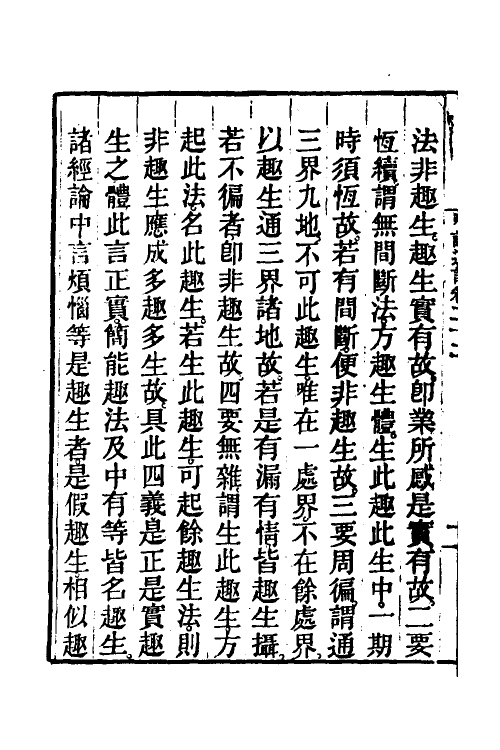 法非趣生。趣生實有故。卽業所感是實有故。二要
恆續。謂無間斷法。方趣生體。生此趣此生中。一期
時須恆故。若有間斷便非趣生故。三要周徧。謂通
三界九地。不可此趣生唯在一處界。不在餘處界。
以趣生通三界諸地故。若是有漏有情皆趣生攝。
若不徧者卽非趣生故。四要無雜。謂生此趣生。方
起此法。名此趣生。若生此趣生。可起餘趣生法。則
非趣生應成多趣多生故。具此四義是正是實趣
生之體。此言正實。簡能趣法及中有等皆名趣生。
諸經論中言煩惱等是趣生者。是假趣生相似趣